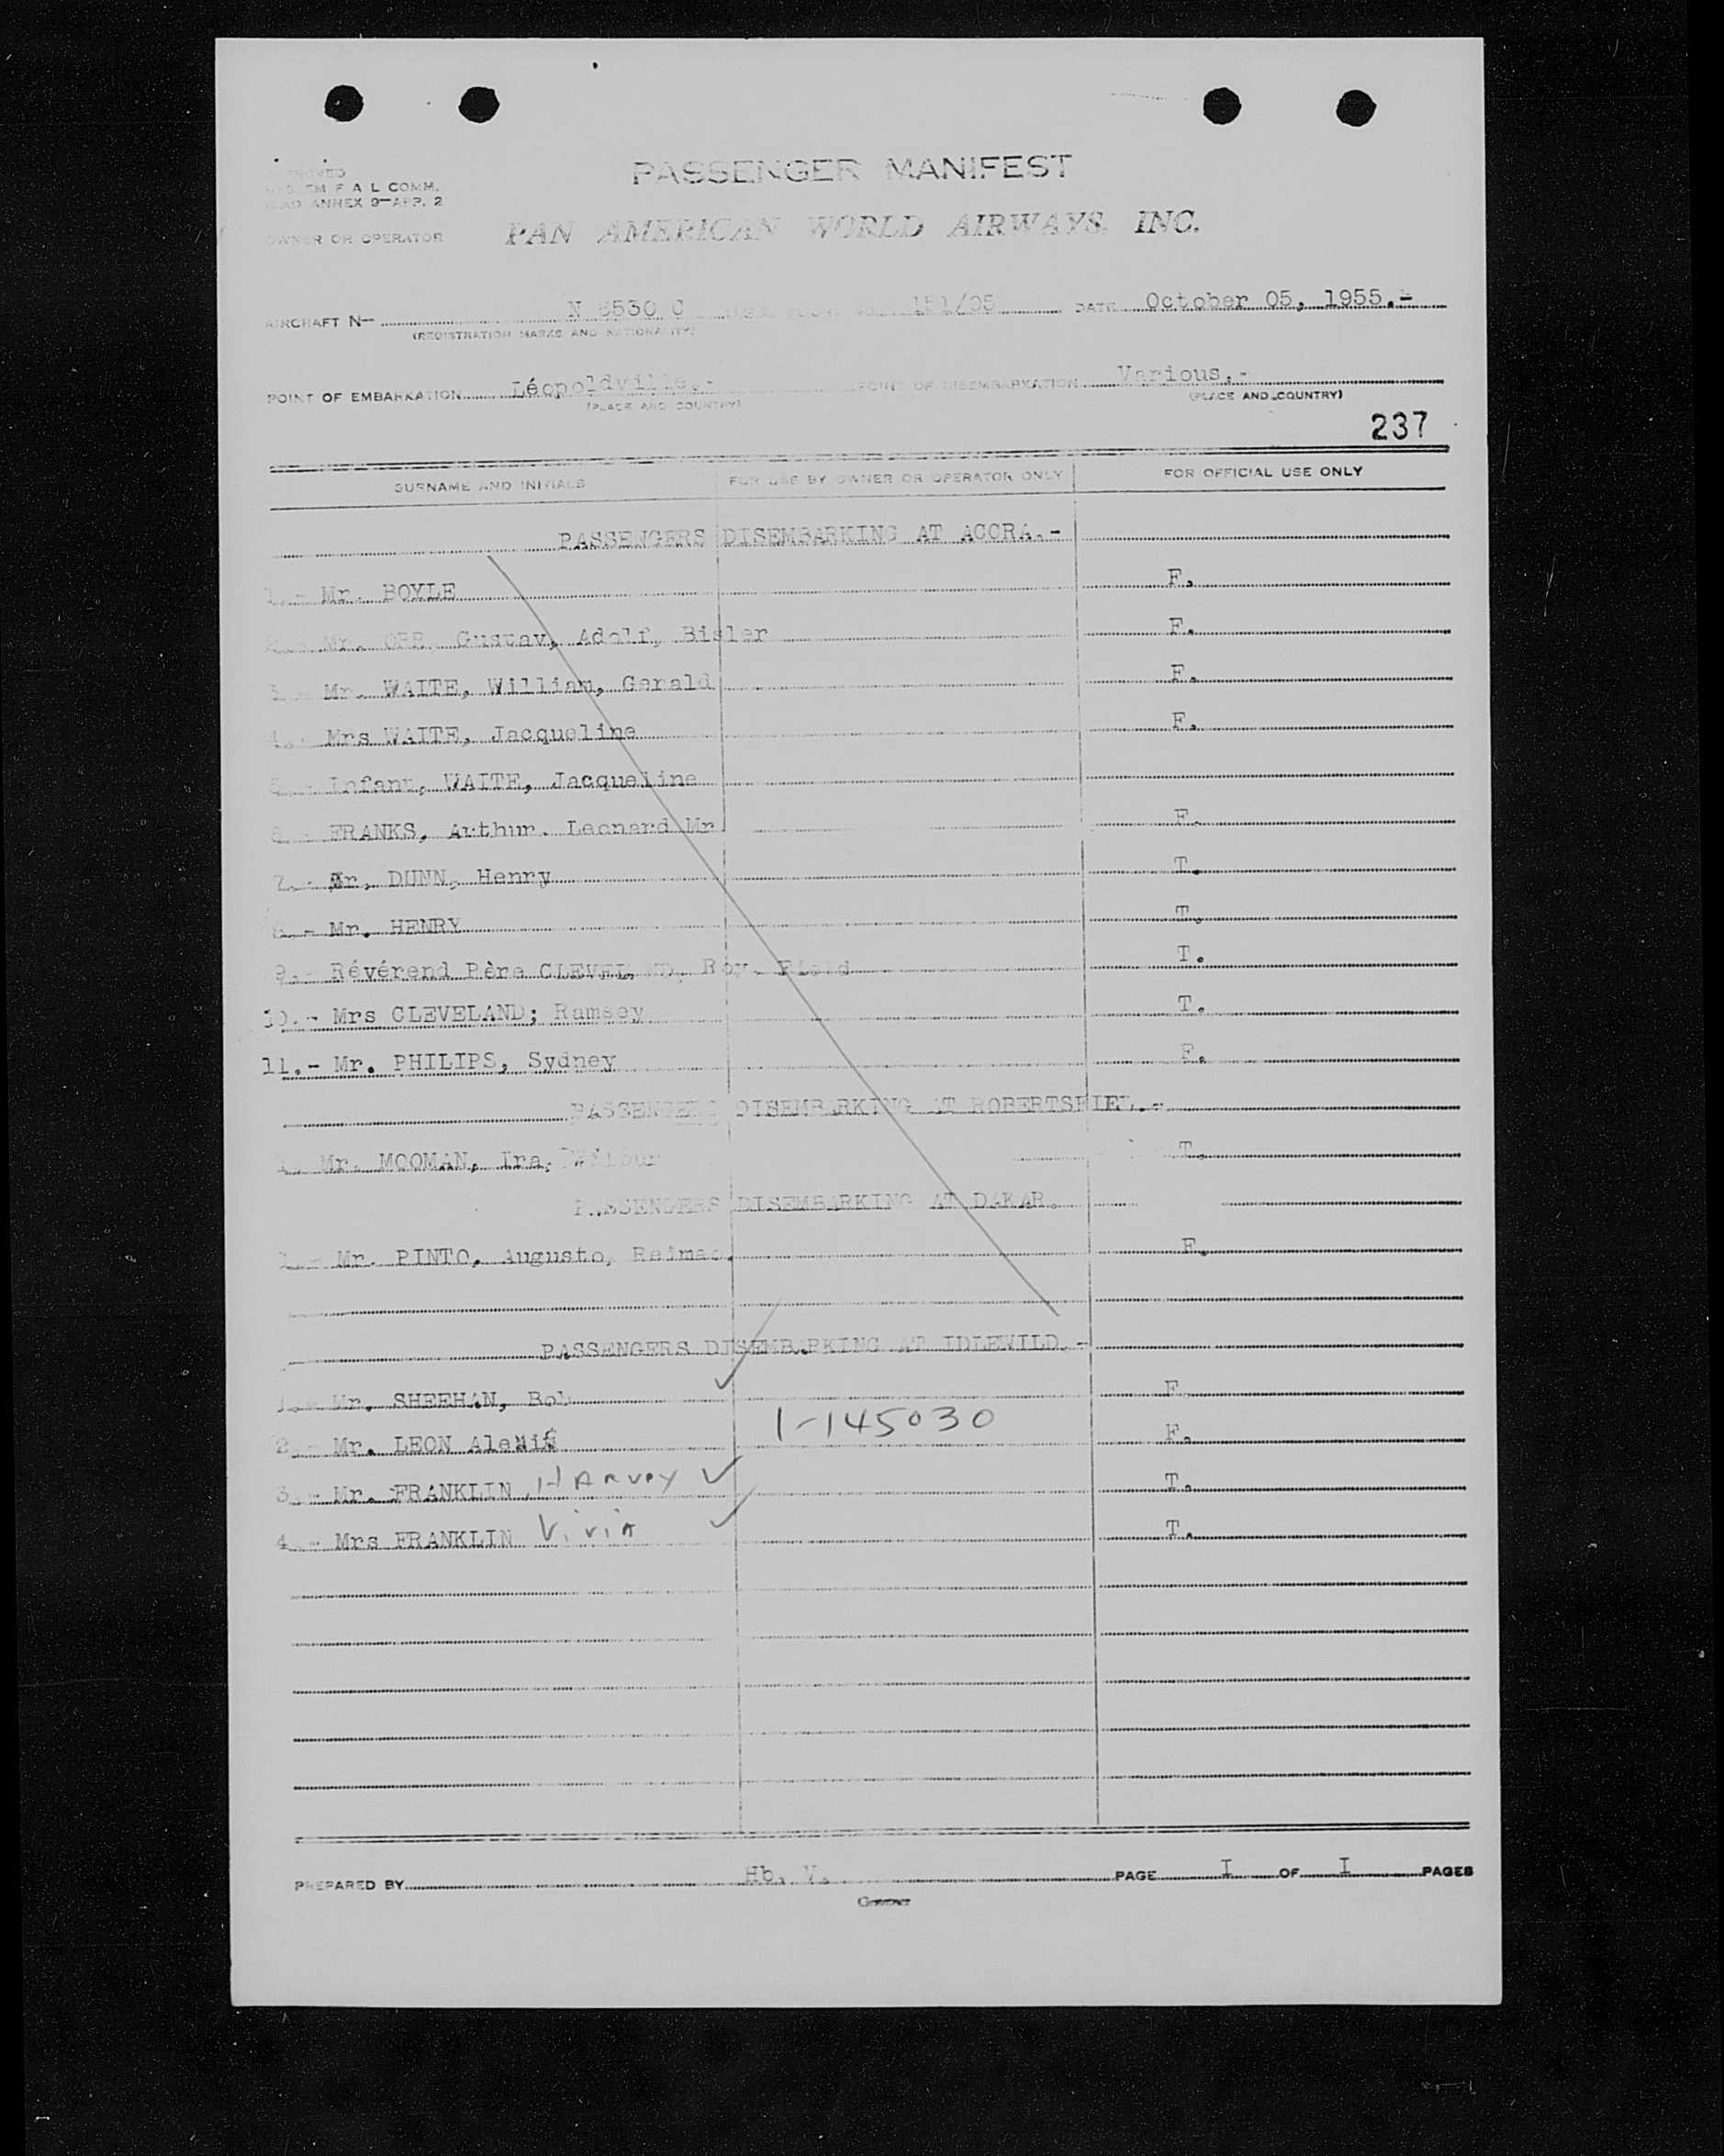 PASSENGER MANIFEST
F A L COMM.
ANNEX 9-APP. 2
OWNER OR OPERATOR PAN AMERICAN WORLD AIRWAYS, INC.
AIRCRAFT N- N 6530 C 151/05 DATE October 05, 1955.-
(REGISTRATION MARKS AND NATIONALITY)
POINT OF EMBARKATION Léopoldville.- POINT OF DISEMBARKATION Various.-
(PLACE AND COUNTRY) (PLACE AND COUNTRY)
237
SURNAME AND INITIALS FOR USE BY OWNER OR OPERATOR ONLY FOR OFFICIAL USE ONLY
PASSENGERS DISEMBARKING AT ACCRA.-
1.- Mr. BOYLE F.
2.- Mr. ORR, Gustav, Adolf, Bisler F.
3.- Mr. WAITE, William, Gerald F.
4.- Mrs WAITE, Jacqueline F.
5.- Infant, WAITE, Jacqueline
6.- FRANKS, Arthur. Leonard Mr F.
7.- Mr. DUNN, Henry T.
8.- Mr. HENRY T.
9.- Révérend Père CLEVELAND, Roy. Field T.
10.- Mrs CLEVELAND; Ramsey T.
11.- Mr. PHILIPS, Sydney F.
PASSENGERS DISEMBARKING AT ROBERTSFIEL.-
1. Mr. MOOMAN, Ira, Wilbur T.
PASSENGERS DISEMBARKING AT DAKAR.
1.- Mr. PINTO, Augusto, Reimao. F.
PASSENGERS DISEMBARKING AT IDLEWILD.-
1.- Mr. SHEEHAN, Bob ✓ F.
2.- Mr. LEON 1-145030 F.
3.- Mr. FRANKLIN, HARVEY ✓ T.
4.- Mrs FRANKLIN Vivia ✓ T.
PREPARED BY Hb. V. PAGE I OF I PAGES